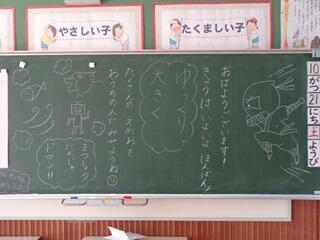 やさしい子
たくましい子
10
がつ
21
にち
土
ようび
おはようございます!
きょうは いよいよ ほんばん!
ゆっくり
大きく
たくさんの えがおを
おうちの人に みせようね
まつしょう
にんじゃ
ドロン!!